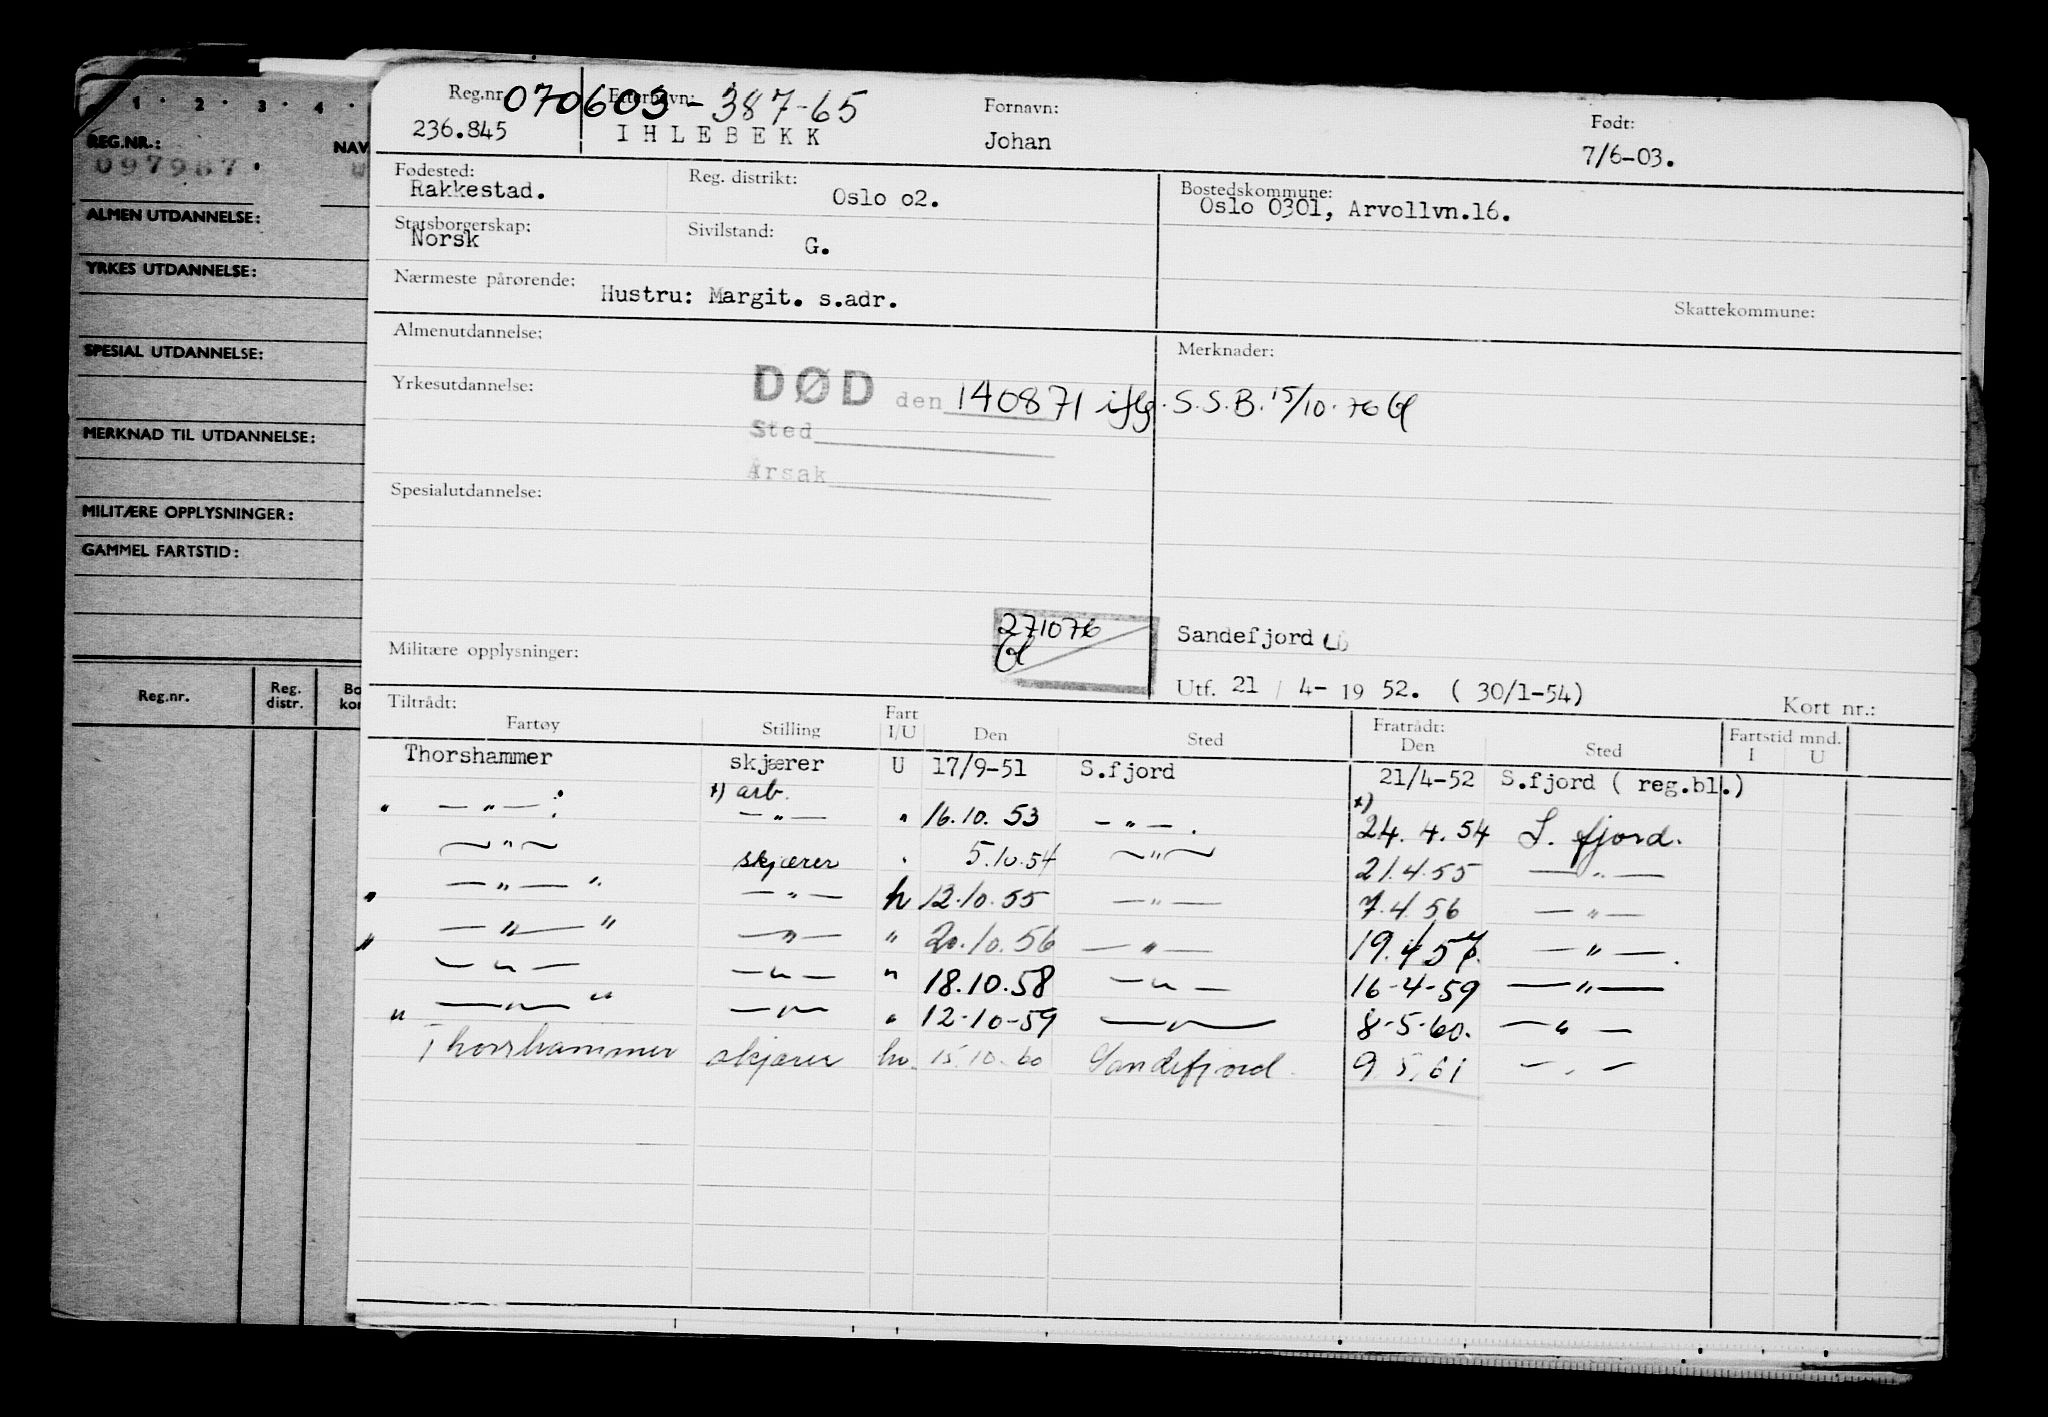 1 · 2 · 3 · 4 ·
REG.NR.:
097987.
NAV
ALMEN UTDANNELSE:
YRKES UTDANNELSE:
SPESIAL UTDANNELSE:
MERKNAD TIL UTDANNELSE:
MILITÆRE OPPLYSNINGER:
GAMMEL FARTSTID:
Reg.nr. Reg. distr. Bo kon
Reg.nr. 070603-387-65 Etternavn: Fornavn: Født:
236.845 IHLEBEKK Johan 7/6-03.
Fødested: Reg. distrikt: Bostedskommune:
Rakkestad. Oslo o2. Oslo 0301, Arvollvn.16.
Statsborgerskap: Sivilstand:
Norsk G.
Nærmeste pårørende: Hustru: Margit. s.adr. Skattekommune:
Almenutdannelse: Merknader:
Yrkesutdannelse: DØD den 140871 iflg. S.S.B. 15/10-76 bl
Sted
Årsak
Spesialutdannelse:
271076 Sandefjord
bl
Militære opplysninger:
Utf. 21 / 4- 19 52. ( 30/1-54) Kort nr.:
Tiltrådt: Fratrådt:
Fartøy Stilling Fart I/U Den Sted Den Sted Fartstid mnd. I U
Thorshammer skjærer U 17/9-51 S.fjord 21/4-52 S.fjord ( reg.bl.)
x) arb. x)
" — " — : — " — " 16.10.53 — " — . 24.4.54 S. fjord.
— " — skjærer " 5.10.54 — " — 21.4.55 — " —
— " — " — " — h 12.10.55 — " — 7.4.56 — " —
" — " — " — " — " 20.10.56 — " — 19.4.57. — " — .
" — " — — " — " 18.10.58 — " — 16-4-59 — " —
— " — " — " — " 12-10-59 — " — 8-5-60. — " —
" Thorshammer skjærer hv. 15.10.60 Sandefjord 9.5.61 — " —